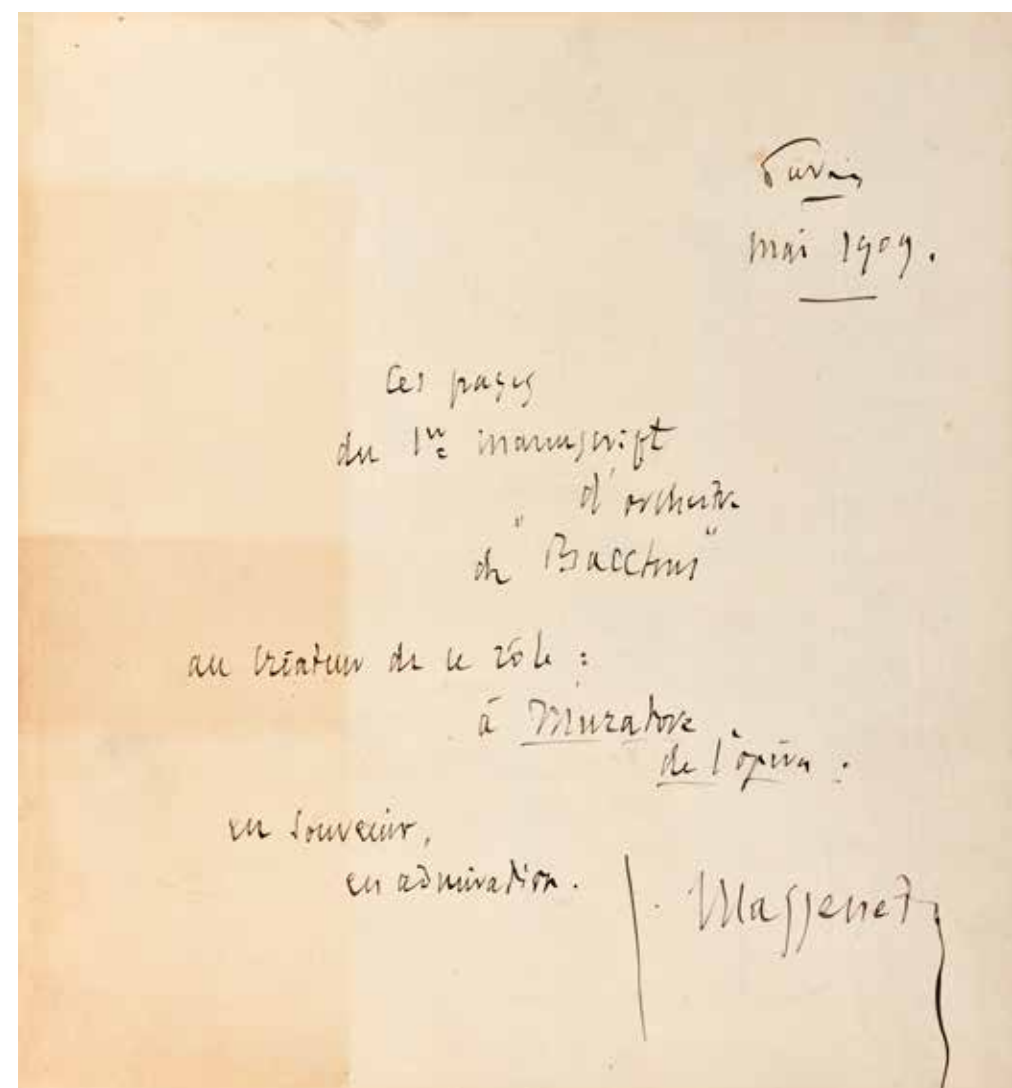 Paris
mai 1909.
Ces pages
du 1er manuscrit
d'orchestre
de "Bacchus"
au créateur de ce rôle :
à Muratore
de l'opéra :
en souvenir,
en admiration.
Massenet